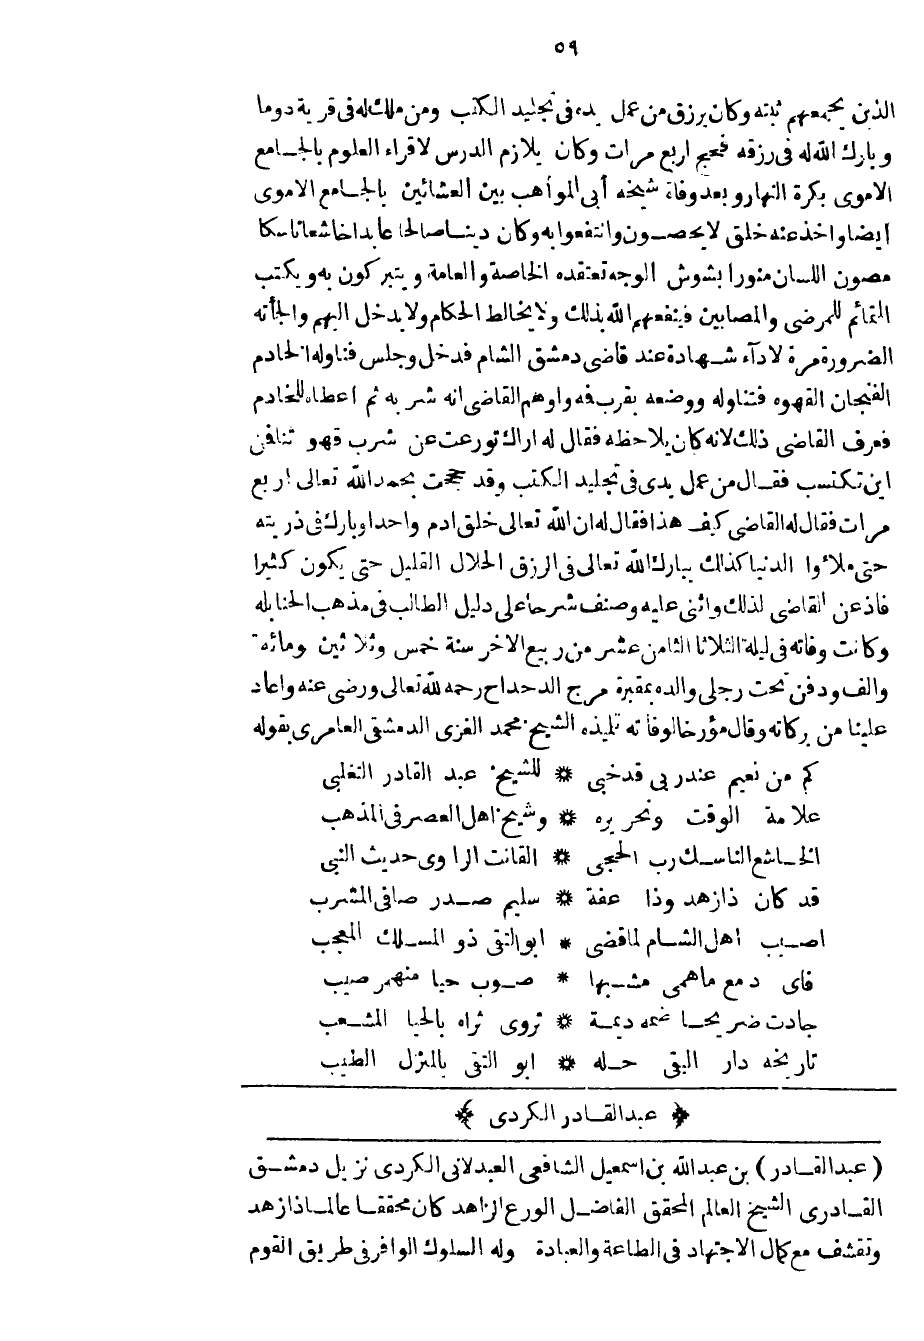 ٥٩
الذين يجمعهم ثبته وكان يرزق من عمل يده فى تجليد الكتب ومن ملك له فى قرية دوما
وبارك الله له فى رزقه فحج اربع مرات وكان يلازم الدرس لاقراء العلوم بالجامع
الاموى بكرة النهار وبعد وفاة شيخه أبى المواهب بين العشائين بالجامع الاموى
أيضا واخذ عنه خلق لا يحصون وانتفعوا به وكان دينا صالحا عابدا خاشعا ناسكا
مصون اللسان منورا بشوش الوجه تعتقده الخاصة والعامة ويتبركون به ويكتب
التمائم للمرضى والمصابين فينفعهم الله بذلك ولا يخالط الحكام ولا يدخل اليهم والجأته
الضرورة مرة لادآء شهادة عند قاضى دمشق الشام فدخل وجلس فناوله الخادم
الفنجان القهوه فتناوله ووضعه بقرب فه واوهم القاضى انه شربه ثم اعطاه للخادم
فعرف القاضى ذلك لانه كان يلاحظه فقال له اراك تورعت عن شرب قهوتنا فمن
اين تكتسب فقال من عمل يدى فى تجليد الكتب وقد حججت بحمد الله تعالى اربع
مرات فقال له القاضى كيف هذا فقال له ان الله تعالى خلق ادم واحدا وبارك فى ذريته
حتى ملاءوا الدنيا كذلك يبارك الله تعالى فى الرزق الحلال القليل حتى يكون كثيرا
فاذعن القاضى لذلك واثنى عليه وصنف شرحا على دليل الطالب فى مذهب الحنابله
وكانت وفاته فى ليلة الثلاثا الثامن عشر من ربيع الاخر سنة خمس وثلاثين ومائة
والف ودفن تحت رجلى والده بمقبرة مرج الدحداح رحمه الله تعالى ورضى عنه واعاد
علينا من بركاته وقال مؤرخا لوفاته تليذه الشيخ محمد الغزى الدمشقى العامرى بقوله
كم من نعيم عند ربى قد خبى * للشيخ عبد القادر التغلبى
علامة الوقت ونحريره * وشيخ اهل العصر فى المذهب
الخاشع الناسك رب الحجى * القانت الراوى حديث النبى
قد كان ذا زهد وذا عفة * سليم صدر صافى المشرب
اصيب اهل الشام لما قضى * ابو التقى ذو المسلك المعجب
فاى دمع ماهمى مشبها * صوب حيا منهمر صيب
جادت ضريحا ضمه ديمة * تروى ثراه بالحيا المشعب
تاريخه دار البقى حله * ابو التقى بالمنزل الطيب
﴿ عبد القادر الكردى ﴾
(عبد القادر) بن عبد الله بن اسمعيل الشافعى العبدلانى الكردى نزيل دمشق
القادرى الشيخ العالم المحقق الفاضل الورع الزاهد كان محققا عالما ذا زهد
وتقشف مع كمال الاجتهاد فى الطاعة والعبادة وله السلوك الوافر فى طريق القوم